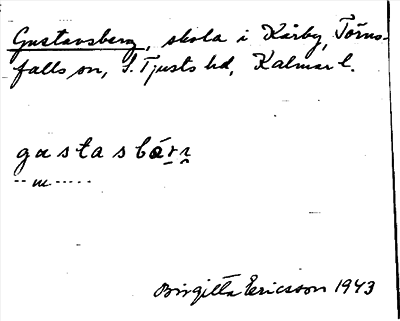 Gustavsberg, skola i Kårby, Törns-
falls sn, S. Tjusts hd, Kalmar l.
Birgitta Ericsson 1943